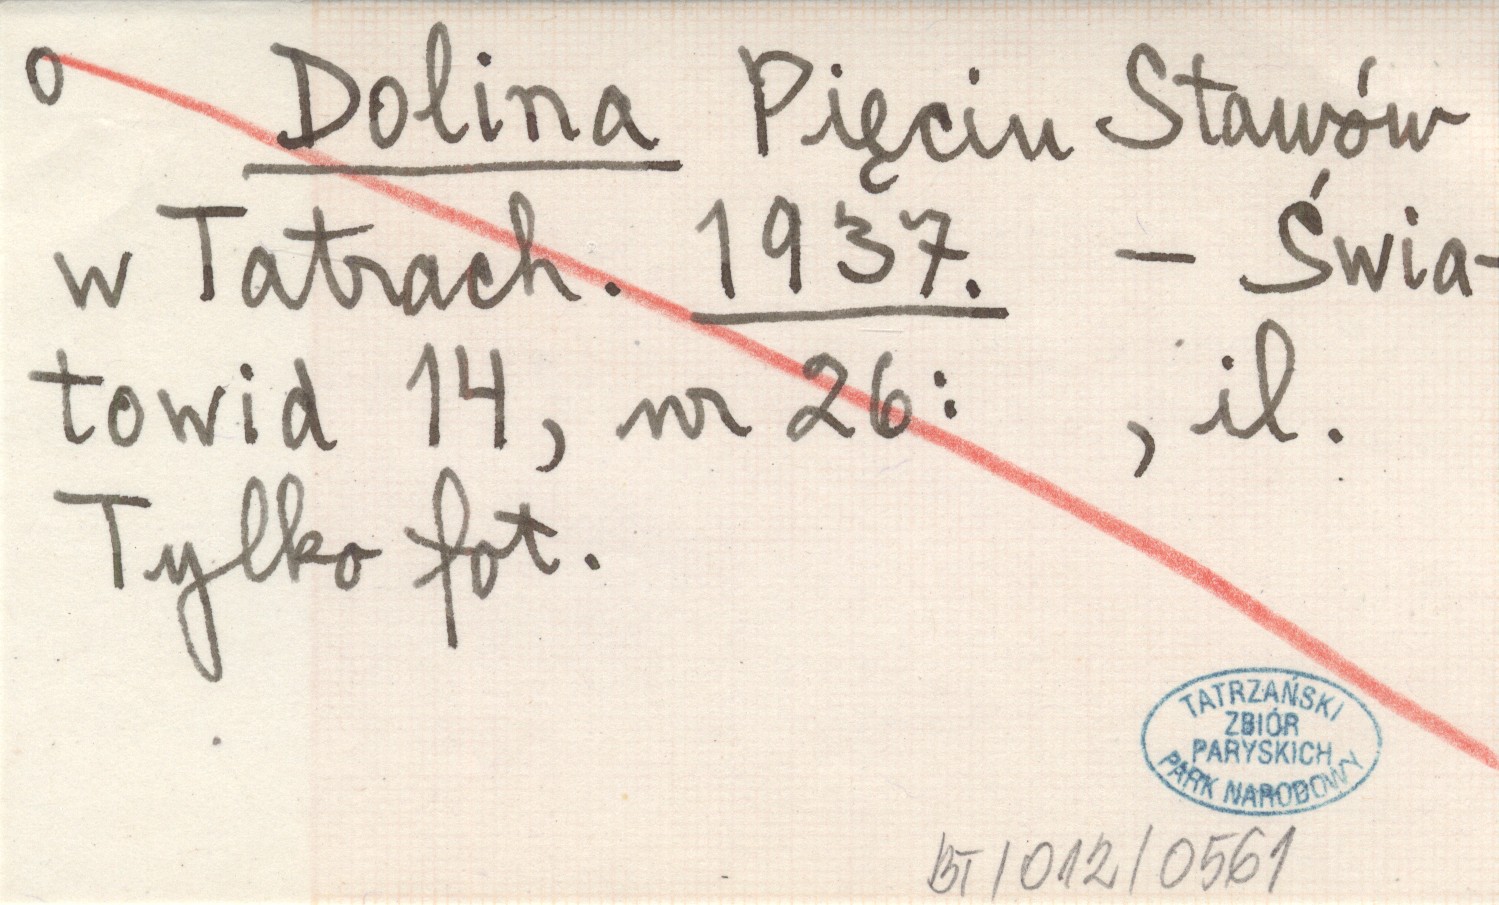 o Dolina Pięciu Stawów
w Tatrach. 1937. – Świa-
towid 14, nr 26: , il.
Tylko fot.
TATRZAŃSKI
ZBIÓR
PARYSKICH
PARK NARODOWY
BT/012/0561